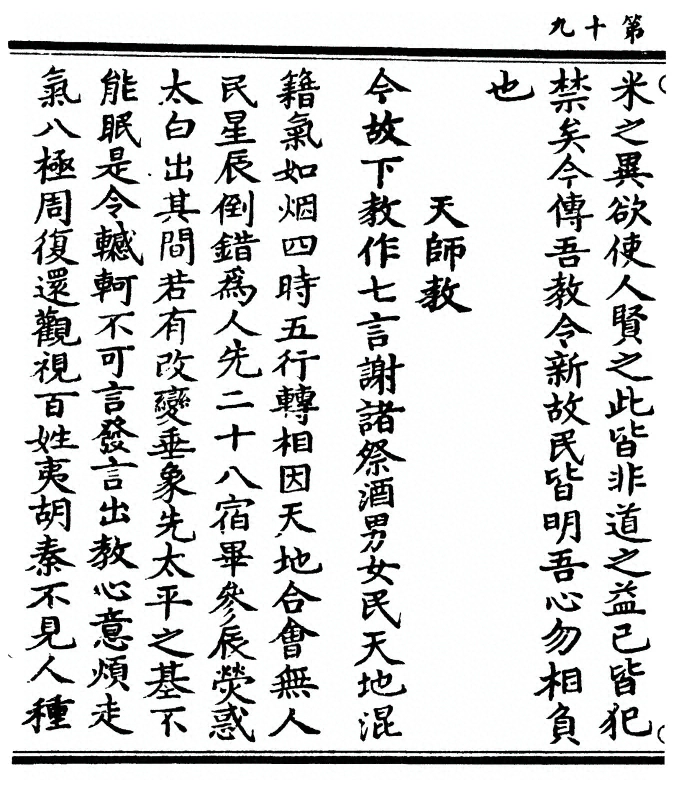 第十九
米之異欲使人賢之此皆非道之益已皆犯
禁矣今傳吾教令新故民皆明吾心勿相負
也
天師教
今故下教作七言謝諸祭酒男女民天地混
籍氣如烟四時五行轉相因天地合會無人
民星辰倒錯爲人先二十八宿畢參辰熒惑
太白出其間若有改變垂象先太平之基不
能眠是令轗軻不可言發言出教心意煩走
氣八極周復還觀視百姓夷胡秦不見人種